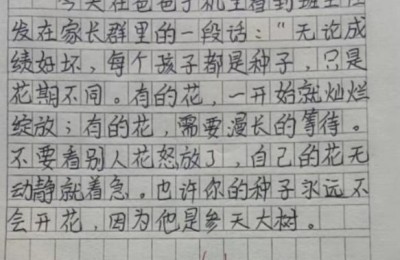 今天在爸爸手机里看到班主任
发在家长群里的一段话："无论成
绩好坏，每个孩子都是种子，只是
花期不同。有的花，一开始就灿烂
绽放；有的花，需要漫长的等待。
不要看别人花怒放了，自己的花无
动静就着急。也许你的种子永远不
会开花，因为他是参天大树。